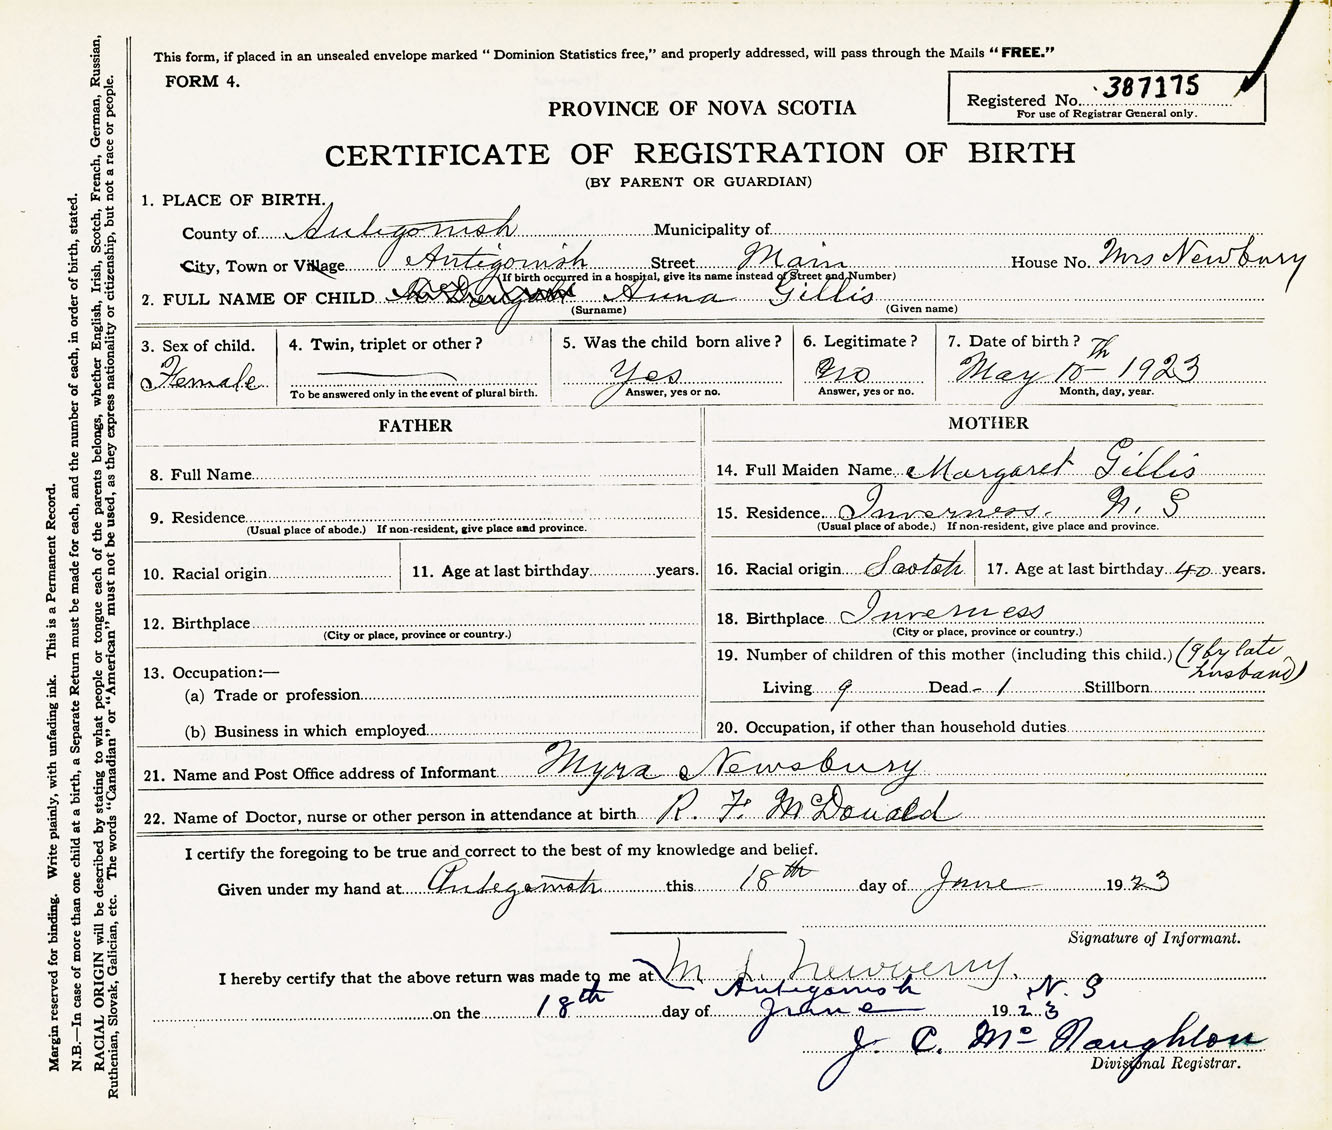 This form, if placed in an unsealed envelope marked “ Dominion Statistics free,” and properly addressed, will pass through the Mails “ FREE.”
FORM 4.
Registered No. 387175
For use of Registrar General only.
PROVINCE OF NOVA SCOTIA
CERTIFICATE OF REGISTRATION OF BIRTH
(BY PARENT OR GUARDIAN)
1. PLACE OF BIRTH.
County of Antigonish Municipality of
City, Town or Village Antigonish Street Main House No. Mrs Newbury
(If birth occurred in a hospital, give its name instead of Street and Number)
2. FULL NAME OF CHILD Anna Gillis
(Surname) (Given name)
3. Sex of child. Female
4. Twin, triplet or other ?
To be answered only in the event of plural birth.
5. Was the child born alive ? Yes
Answer, yes or no.
6. Legitimate ? No
Answer, yes or no.
7. Date of birth ? May th 1923
Month, day, year.
FATHER
8. Full Name
9. Residence
(Usual place of abode.) If non-resident, give place and province.
10. Racial origin 11. Age at last birthday years.
12. Birthplace
(City or place, province or country.)
13. Occupation:—
(a) Trade or profession
(b) Business in which employed
MOTHER
14. Full Maiden Name Margaret Gillis
15. Residence Inverness. N. S
(Usual place of abode.) If non-resident, give place and province.
16. Racial origin Scotch 17. Age at last birthday 40 years.
18. Birthplace Inverness
(City or place, province or country.)
19. Number of children of this mother (including this child.) (9 by late husband)
Living 9 Dead - 1 Stillborn
20. Occupation, if other than household duties
21. Name and Post Office address of Informant Myra Newsbury
22. Name of Doctor, nurse or other person in attendance at birth R. F. McDonald
I certify the foregoing to be true and correct to the best of my knowledge and belief.
Given under my hand at Antegonish this 18th day of June 1923
Signature of Informant.
M L. Newberry.
I hereby certify that the above return was made to me at Antigonish N. S
on the 18th day of June 1923
J. C. Mc Naughton
Divisional Registrar.
Margin reserved for binding. Write plainly, with unfading ink. This is a Permanent Record.
N.B.—In case of more than one child at a birth, a Separate Return must be made for each, and the number of each, in order of birth, stated.
RACIAL ORIGIN will be described by stating to what people or tongue each of the parents belongs, whether English, Irish, Scotch, French, German, Russian,
Ruthenian, Slovak, Galician, etc. The words “Canadian” or “American” must not be used, as they express nationality or citizenship, but not a race or people.